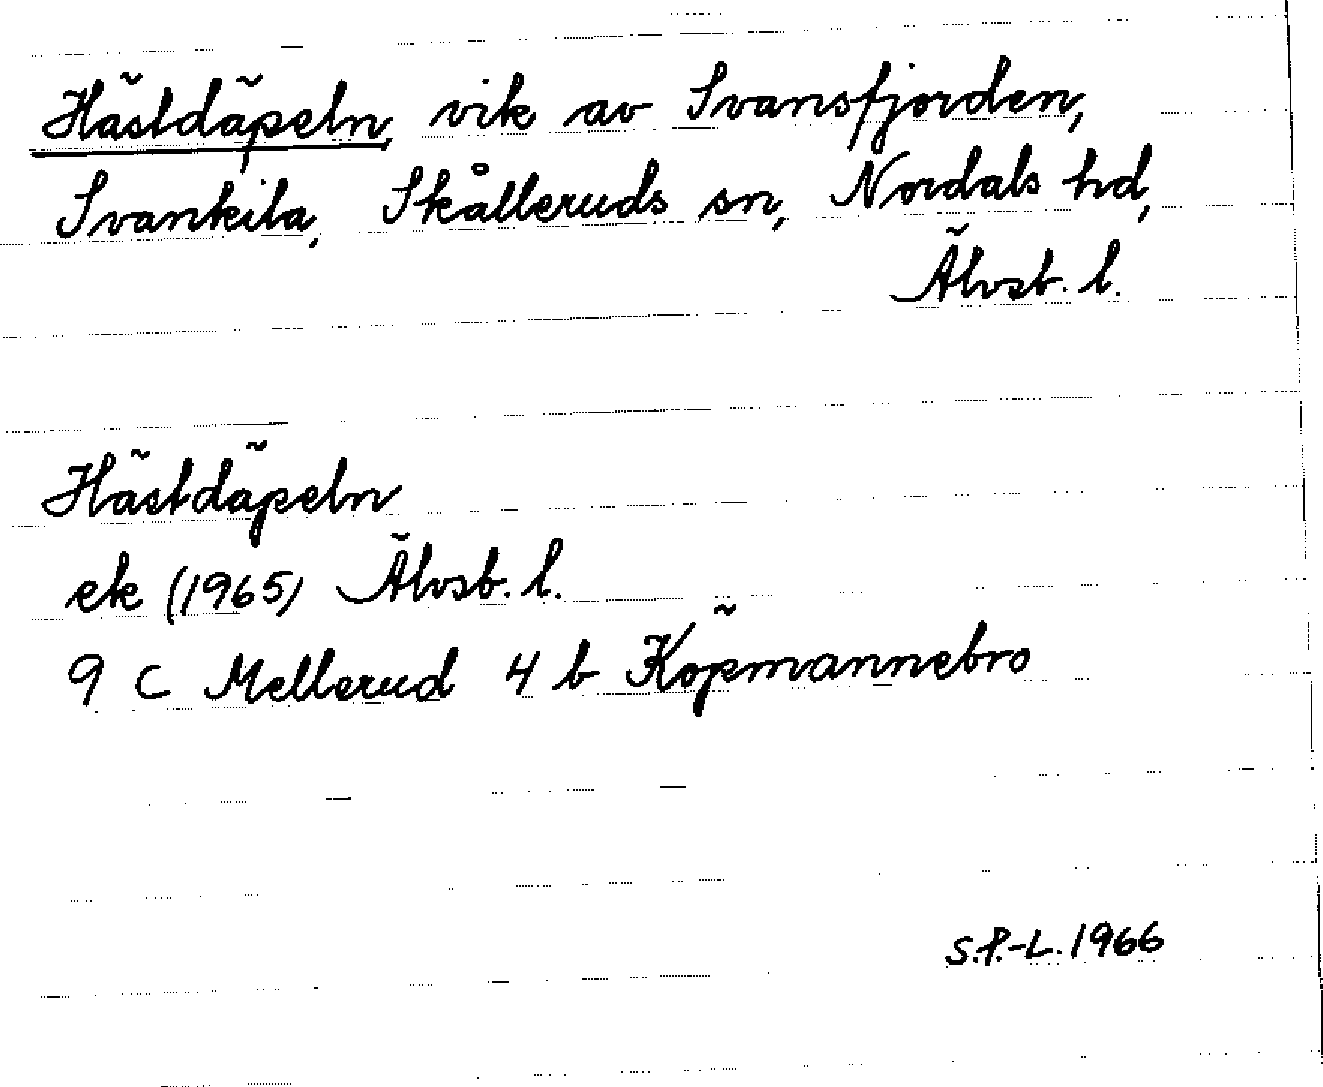 Hästdäpeln, vik av Svansfjorden,
Svankila, Skålleruds sn, Nordals hd,
Älvsb. l.
Hästdäpeln
ek (1965) Älvsb. l.
9 C Mellerud 4 b Köpmannebro
S.P.-L. 1966